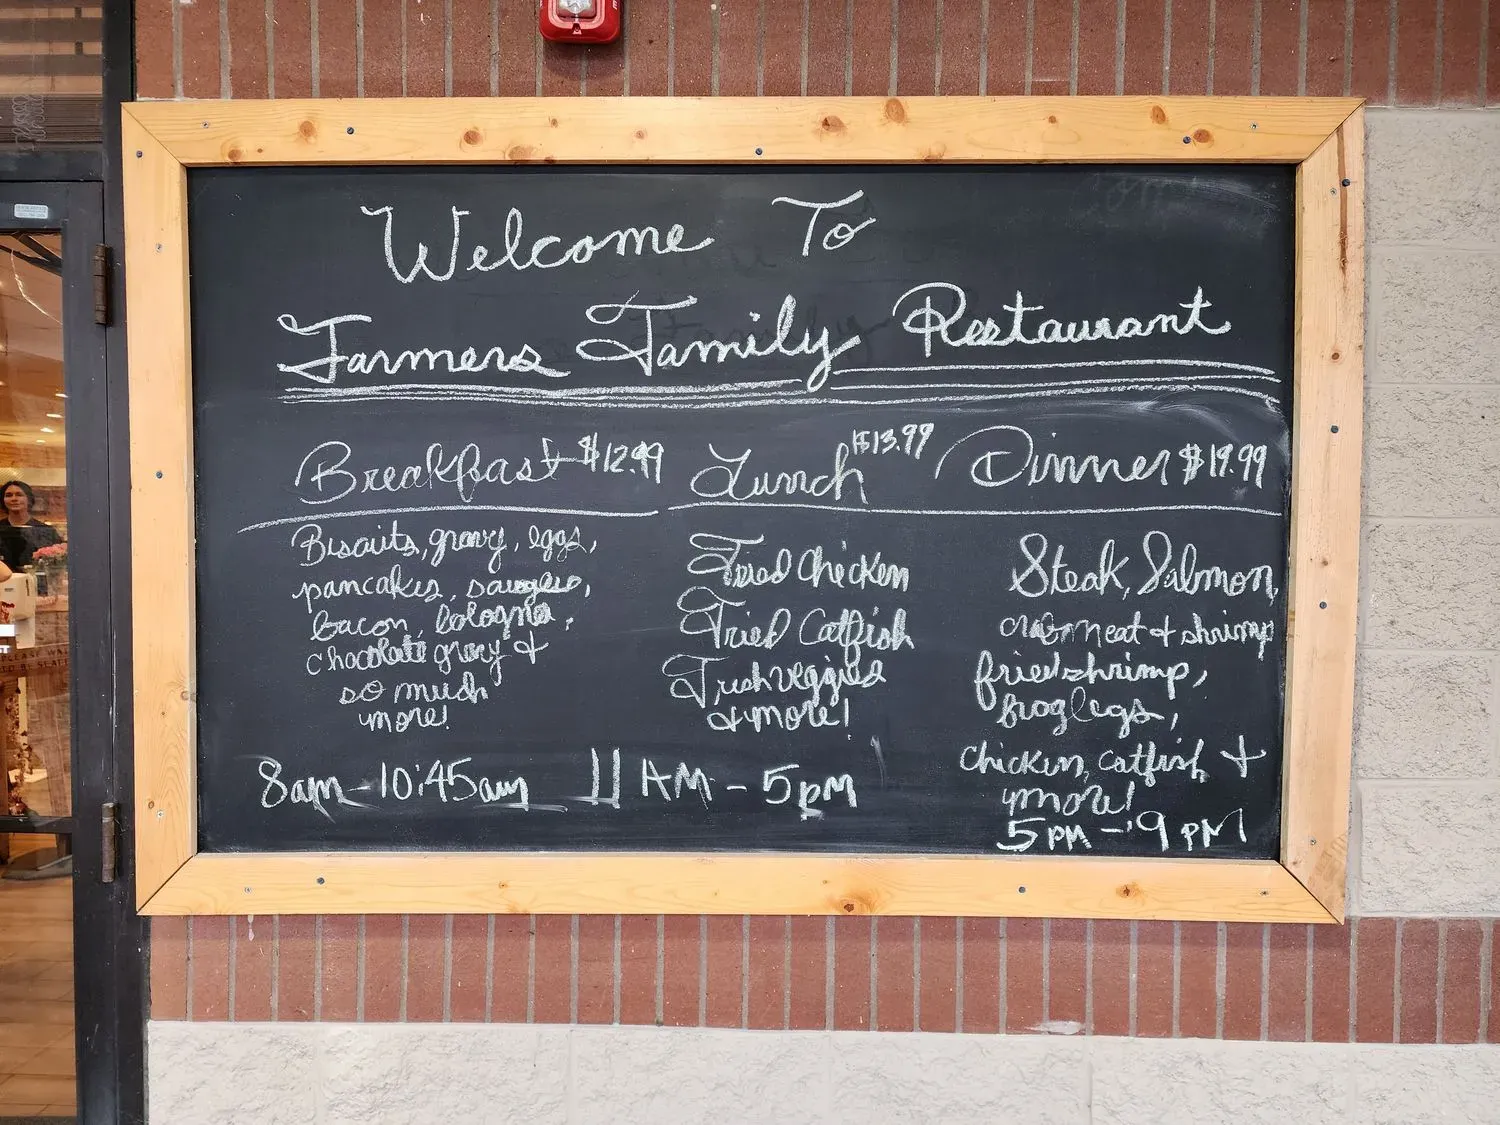 Welcome To
Farmers Family Restaurant
Breakfast $12.99
Biscuits, gravy, eggs,
pancakes, sausages,
bacon, bologna,
chocolate gravy &
so much
more!
8am - 10:45am
Lunch $13.99
Fried Chicken
Fried Catfish
Fresh veggies
& more!
11 AM - 5pm
Dinner $19.99
Steak, Salmon,
crabmeat & shrimp
fried shrimp,
frog legs,
chicken, catfish &
more!
5 PM - 9 PM